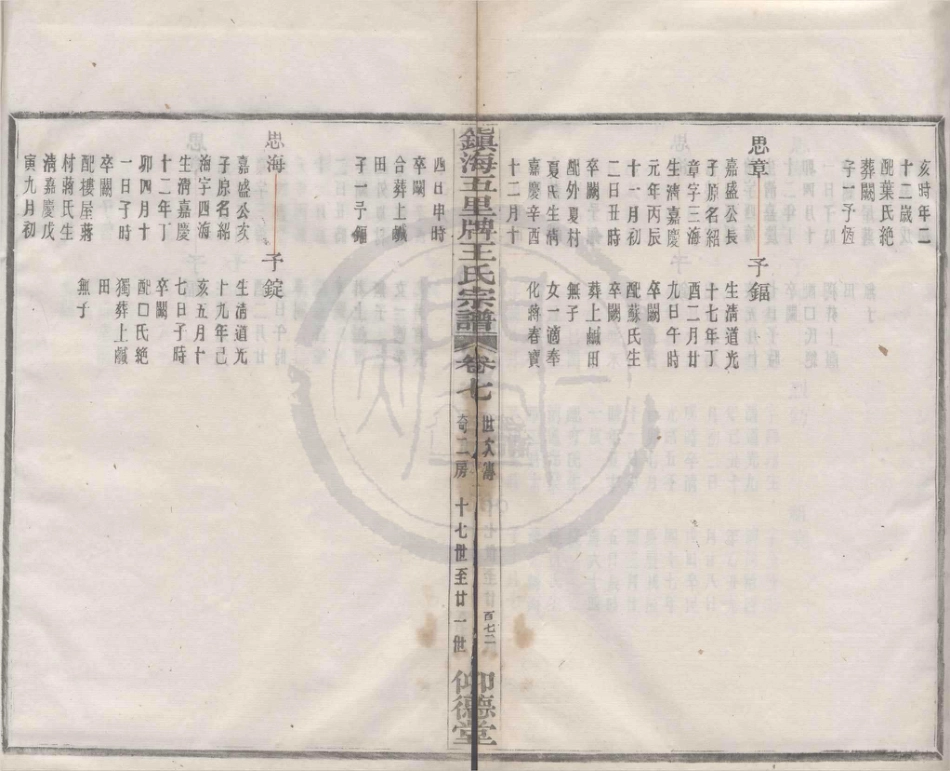 亥時年二
十二歲
配葉氏絶
葬闕
字一予恆
思章
嘉盛公長
子原名紹
章字三海
生濟嘉慶
元年丙辰
十一月初
二日丑時
卒闕
配外夏村
夏氏生清
嘉慶辛酉
十二月十
子鎾
生清道光
十七年丁
酉二月廿
九日午時
卒闕
配蘇氏生
葬上鹹田
無子
女一適奉
化蔣春寶
鎮海五里牌王氏宗譜
卷七
世次傳
奇二房
十七世至廿一世
百七二
仰德堂
四日申時
卒闕
合葬上鹹
田
子一予鎾
思海
嘉盛公次
子原名紹
海字四海
生濟嘉慶
十二年丁
卯四月十
一日子時
卒闕
配樓屋蔣
村蔣氏生
清嘉慶戊
寅九月初
子錠
生清道光
十九年己
亥五月十
七日子時
卒闕
配口氏絶
獨葬上鹹
田
無子